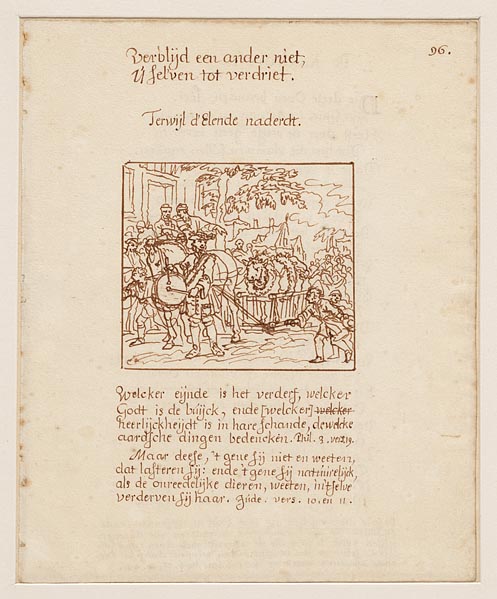 96.
Verblijd een ander niet,
U selven tot verdriet.
Terwijl d'Elende naderdt.
Welcker eijnde is het verderf, welcker
Godt is de buijck, ende [welcker] welcker
heerlijckheijdt is in hare schande, dewelcke
aardsche dingen bedencken. Phil. 3. vers 19.
Maar deese, 't gene sij niet en weeten,
dat lasteren sij: ende 't gene sij natuirelijck,
als de onreedelijke dieren, weeten, in 't selve
verderven sij haar. Jude. vers. 10. en 11.